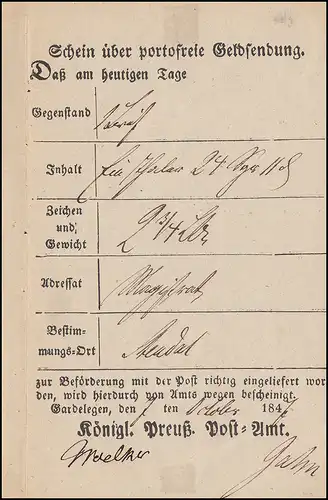 Schein über portofreie Geldsendung.
Daß am heutigen Tage
Gegenstand 1 Brief
Inhalt Ein Thaler 24 Sgr 11 d
Zeichen
und
Gewicht
2 3/4 Lth
Adressat Magistrat
Bestim-
mungs-Ort
Stendal
zur Beförderung mit der Post richtig eingeliefert wor
den, wird hierdurch von Amts wegen bescheinigt.
Gardelegen, den 7 ten October 184
Königl. Preuß. Post-Amt.